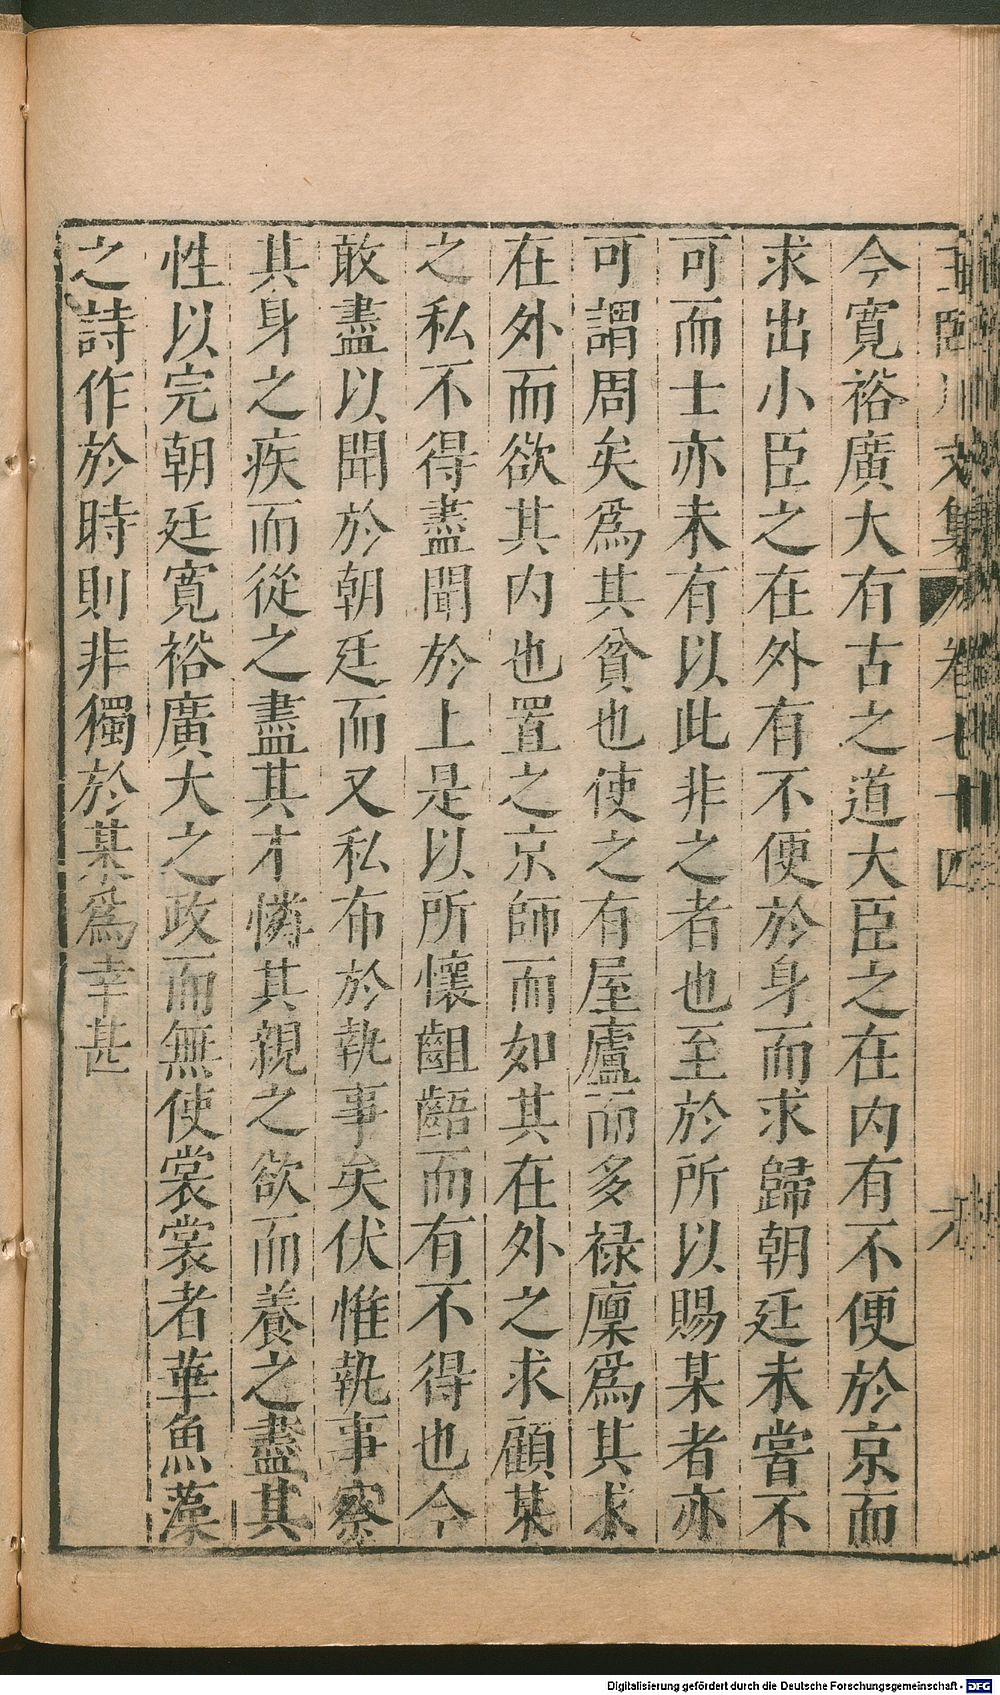 王臨川文集 卷七十四
今寛裕廣大有古之道大臣之在内有不便於京而
求出小臣之在外有不便於身而求歸朝廷未嘗不
可而士亦未有以此非之者也至於所以賜某者亦
可謂周矣為其貧也使之有屋廬而多禄廩為其求
在外而欲其内也置之京師而如其在外之求顧某
之私不得盡聞於上是以所懷齟齬而有不得也今
敢盡以聞於朝廷而又私布於執事矣伏惟執事察
其身之疾而從之盡其才憐其親之欲而養之盡其
性以完朝廷寛裕廣大之政而無使裳裳者華魚藻
之詩作於時則非獨於某為幸甚
Digitalisierung gefördert durch die Deutsche Forschungsgemeinschaft - DFG